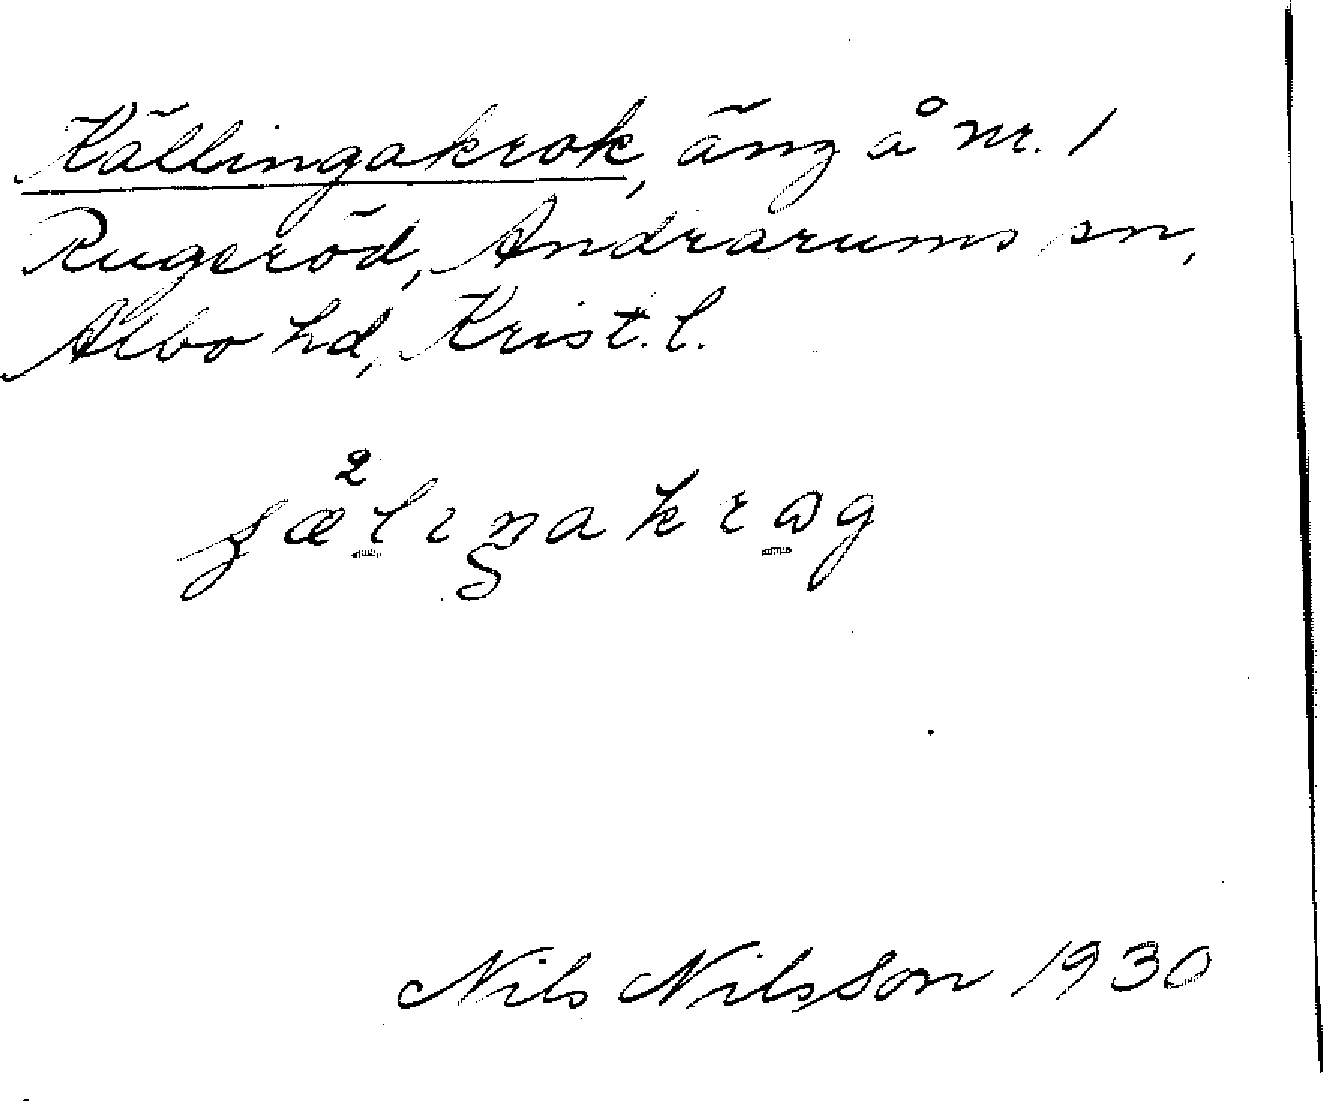 Källingakrok, äng å nr. 1
Rugeröd, Andrarums sn,
Albo hd, Krist. l.
Nils Nilsson 1930